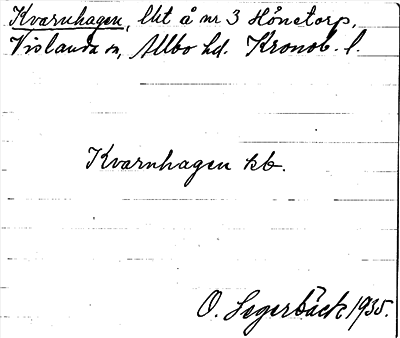 Kvarnhagen, lht å nr 3 Hönetorp,
Vislanda sn, Allbo hd. Kronob. l.
Kvarnhagen hb.
O. Segerbäck 1935.